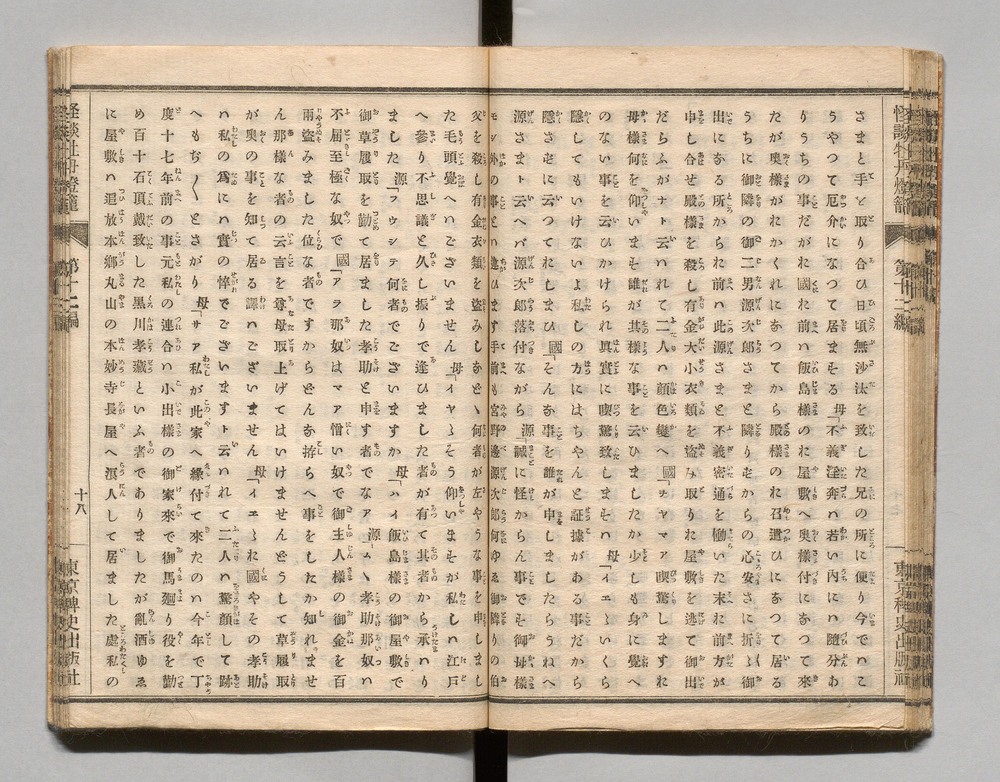 怪談牡丹燈籠　第十二編
東京稗史出版社
さまと手を取り合ひ日頃無沙汰を致した兄の所に便り今でハこ
うやつて厄介になつて居まする 母「不義淫奔ハ若い内にハ隨分あ
りうちの事だがお國お前ハ飯島様のお屋敷へ奥様付になつて來
たが奥様がおかくれになつてから殿様のお召遣ひになつて居る
うちに御隣の御二男源次郎さまと隣りずからの心安さに折々御
出になる所からお前ハ此源さまと不義密通を働いた末お前方が
申し合せ殿様を殺し有金大小衣類を盗み取りお屋敷を逃て御出
だらふがナト云ハれて二人ハ顔色變へ 國「ヲヤマア喫驚しますお
母様何を仰いまそ誰が其様な事を云ひましたか少しも身に覺へ
のない事を云ひかけられ眞實に喫驚致しまそハね 母「イエいくら
隱してもいけないよ私しの方にはちやんと証據がある事だから
隱さずに云つておしまひ 國「そんな事を誰が申しましたらうねへ
源さまト云へバ源次郎落付ながら 源「誠に怪からん事でそ御母様
モシ外の事とハ違ひます手前も宮野邊源次郎何ゆゑ御隣りの伯
父を殺し有金衣類を盗みしなどゝ何者が左やうな事を申しまし
た毛頭覺へハございません 母「イヤ〳〵そう仰いまそが私しハ江戸
へ參り不思議と久し振りで逢ひました者が有て其者から承ハり
ました 源「フウシテ何者でございますか 母「ハイ飯島様の御屋敷で
御草履取を勤て居ました孝助と申す者でなア 源「ム、孝助那奴ハ
不届至極な奴で 國「アラ那奴はマア憎い奴で御主人様の御金を百
兩盗みました位な者ですからどんな拵らへ事をしたか知れませ
ん那様な者の云ふ言を尊母取上げてはいけませんどうして草履取
が奥の事を知つて居る譯ハございません 母「イエ〳〵お國やその孝助
ハ私の爲にハ實の悴でございますト云ハれて二人ハ驚顔して跡
へもぢ〳〵とさがり 母「サア私が此家へ縁付て來たのハ今年で丁
度十七年前の事元私の連合ハ小出様の御家來で御馬廻り役を勤
め百十石頂戴致した黒川孝藏といふ者でありましたが亂酒ゆゑ
に屋敷ハ追放本郷丸山の本妙寺長屋へ浪人して居ました處私の
怪談牡丹燈籠　第十二編
十八
東京稗史出版社